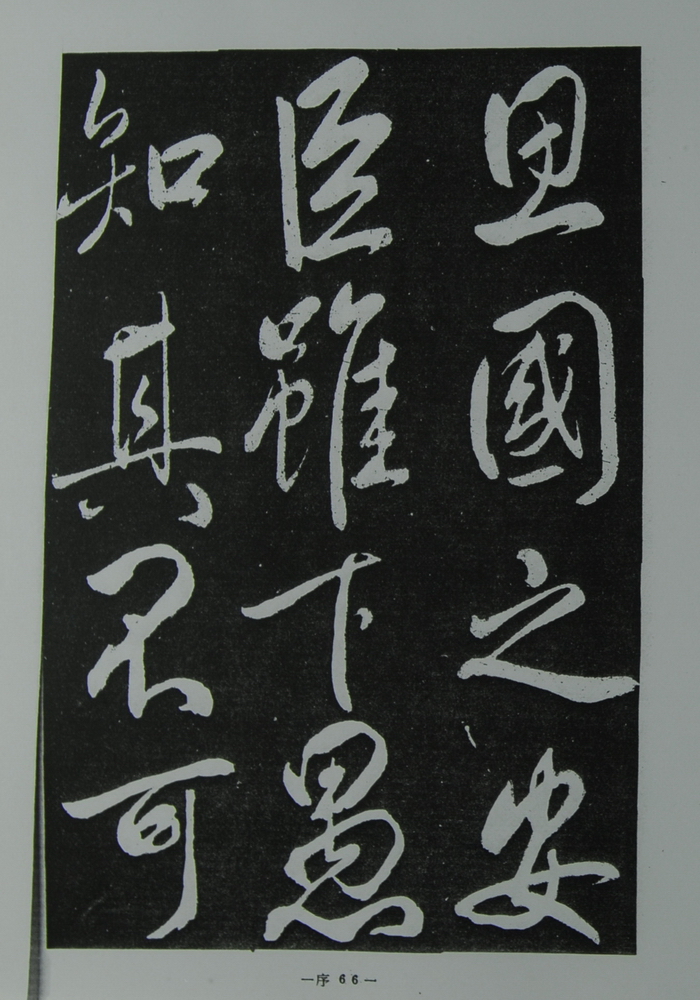 思國之安
臣雖下愚
知其不可
—序 66—